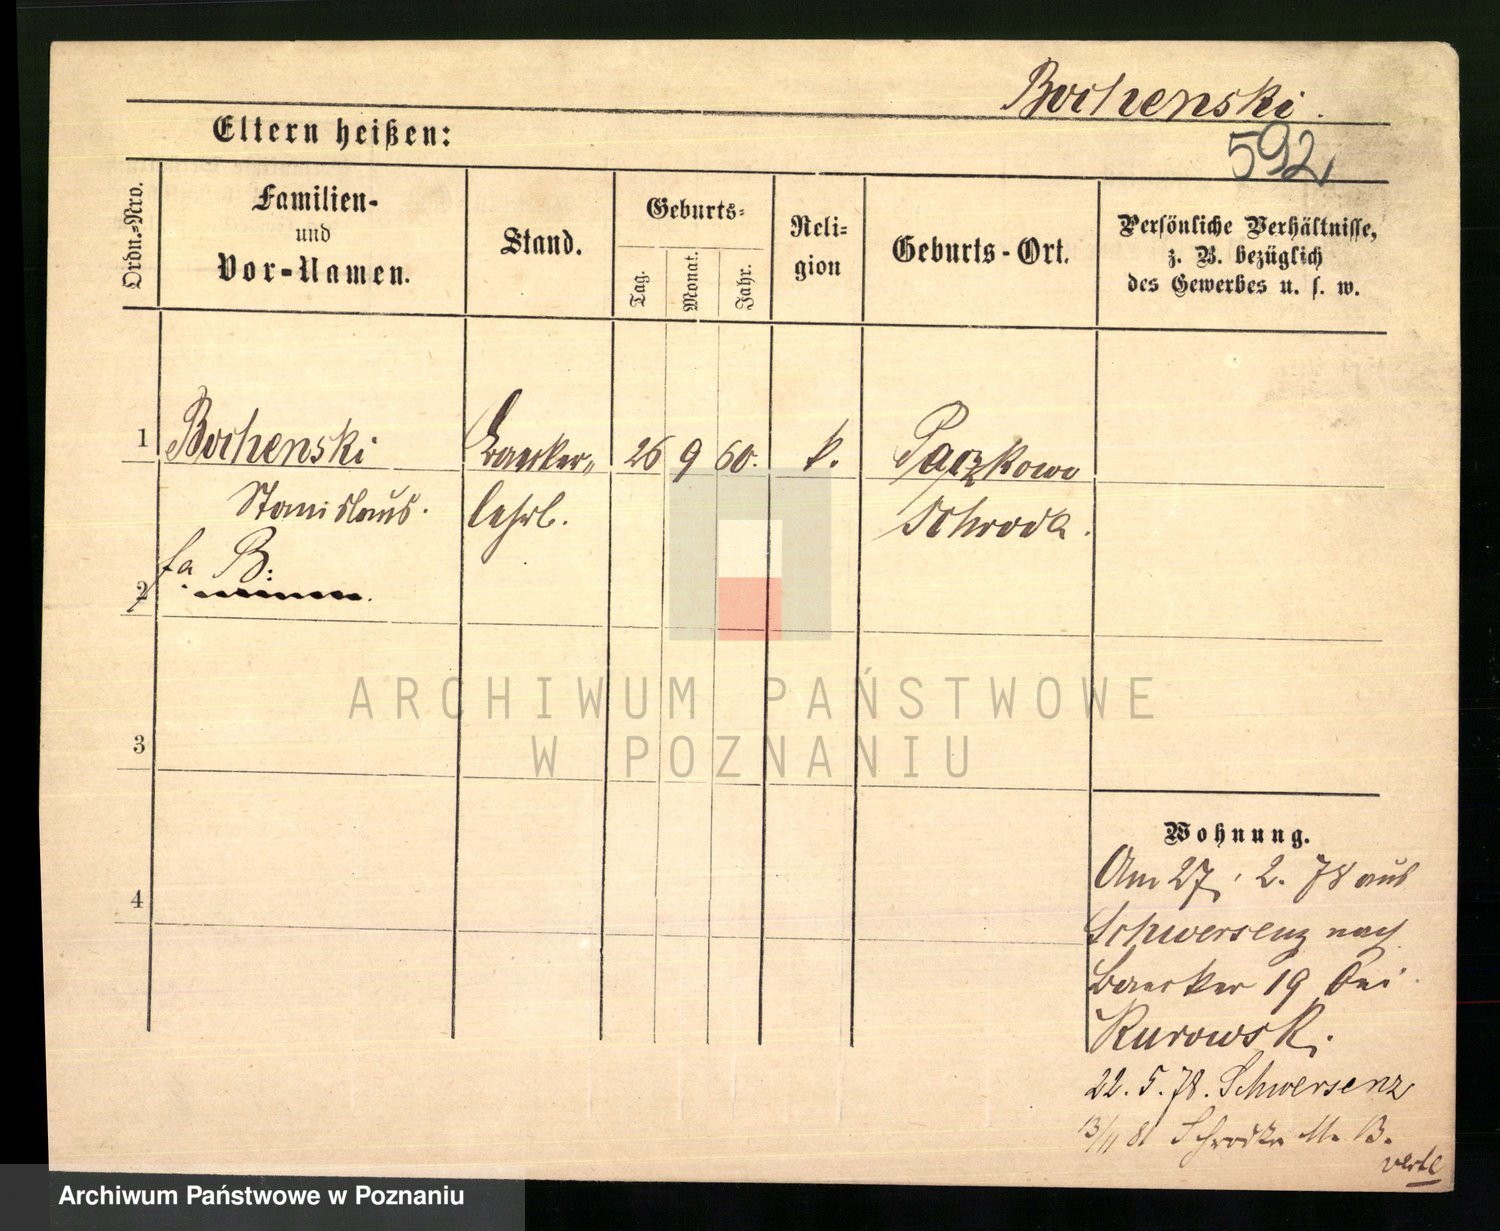 Bochenski.
592
Eltern heißen:
Ordn.=Nro.
Familien-
und
Vor-Namen.
Stand.
Geburts=
Tag.
Monat.
Jahr.
Reli=
gion
Geburts-Ort.
Persönliche Verhältnisse,
z. B. bezüglich
des Gewerbes u. s. w.
1
Bochenski
Baecker„
26 9 60.
k.
Paczkowo
Stanislaus.
lehrl.
Schroda.
2
B:
3
4
Wohnung.
Am 27. 2. 78 aus
Schwersenz nach
Baecker 19 bei
Kurowski.
22. 5. 78. Schwersenz
13/11 81 Schroda
verte
ARCHIWUM PAŃSTWOWE
W POZNANIU
Archiwum Państwowe w Poznaniu